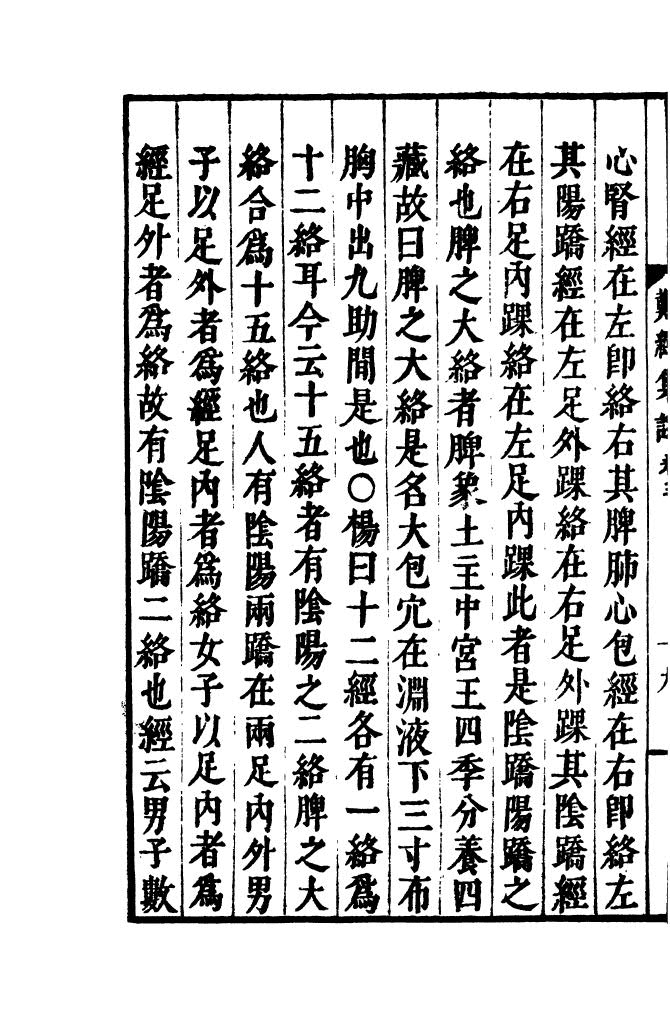 難經集註
心腎經在左卽絡右其脾肺心包經在右卽絡左
其陽蹻經在左足外踝絡在右足外踝其陰蹻經
在右足內踝絡在左足內踝此者是陰蹻陽蹻之
絡也脾之大絡者脾象土王中宮王四季分養四
藏故曰脾之大絡是名大包穴在淵液下三寸布
胸中出九肋間是也○楊曰十二經各有一絡爲
十二絡耳今云十五絡者有陰陽之二絡脾之大
絡合爲十五絡也人有陰陽兩蹻在兩足內外男
子以足外者爲經足內者爲絡女子以足內者爲
經足外者爲絡故有陰陽蹻二絡也經云男子數